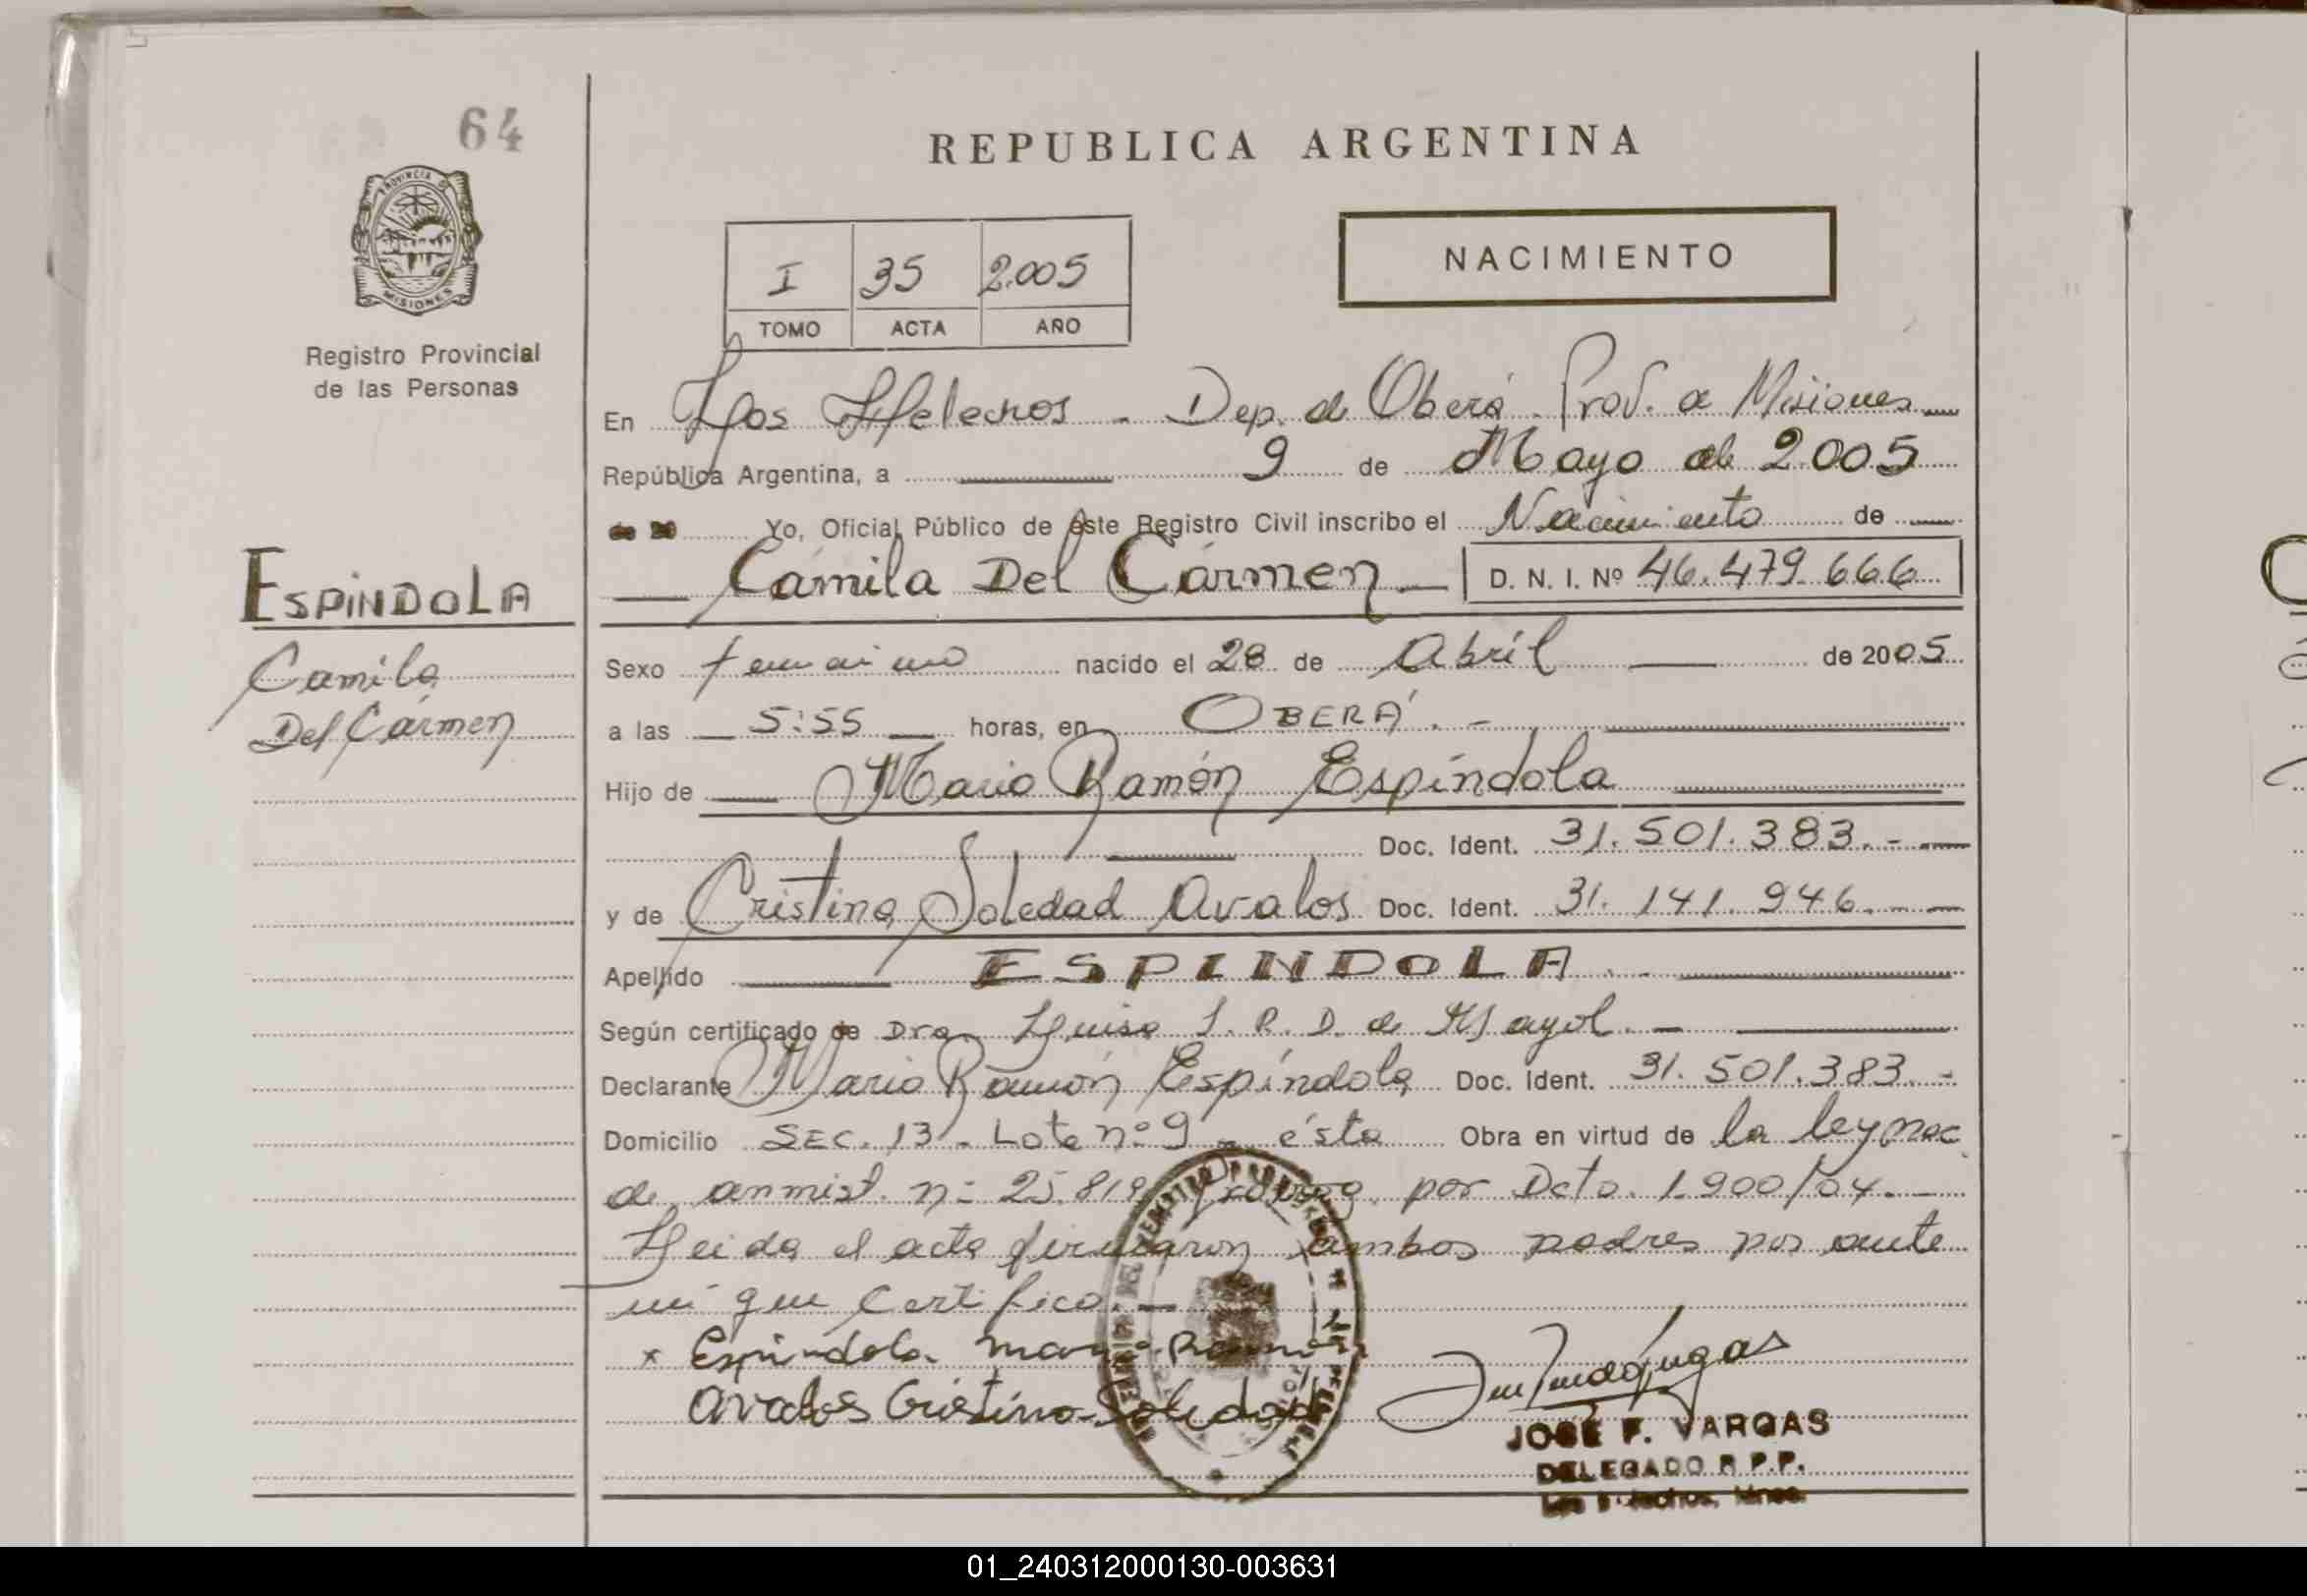 64
PROVINCIA DE
MISIONES
Registro Provincial
de las Personas
REPUBLICA ARGENTINA
I 35 2.005
TOMO ACTA AÑO
NACIMIENTO
En Los Helechos - Dep. de Oberá. Prov. de Misiones
República Argentina, a 9 de Mayo de 2.005
de 20 Yo, Oficial Público de este Registro Civil inscribo el Nacimiento de
Cámila Del Cármen D. N. I. Nº 46.479.666
ESPINDOLA
Camila
Del Cármen
Sexo femenino nacido el 28 de Abril de 2005
a las 5:55 horas, en OBERÁ. -
Hijo de Mario Ramón Espíndola
Doc. Ident. 31.501.383. -
y de Cristina Soledad Avalos Doc. Ident. 31.141.946. -
Apellido ESPINDOLA. -
Según certificado de Dra. Luisa S. R. D. de Mayol. -
Declarante Mario Ramón Espíndola Doc. Ident. 31.501.383. -
Domicilio SEC. 13 - Lote nº 9 - ésta Obra en virtud de la ley nac.
de amnist. nº 25.819 por Dcto. 1.900/04. -
Leida el acta firmaron ambos padres por ante
mí que certifico. -
x Espindola Mario Ramon
Avalos Cristina Soledad
JOSE F. VARGAS
DELEGADO R P.P.
Los Helechos, Mnes.
01_240312000130-003631